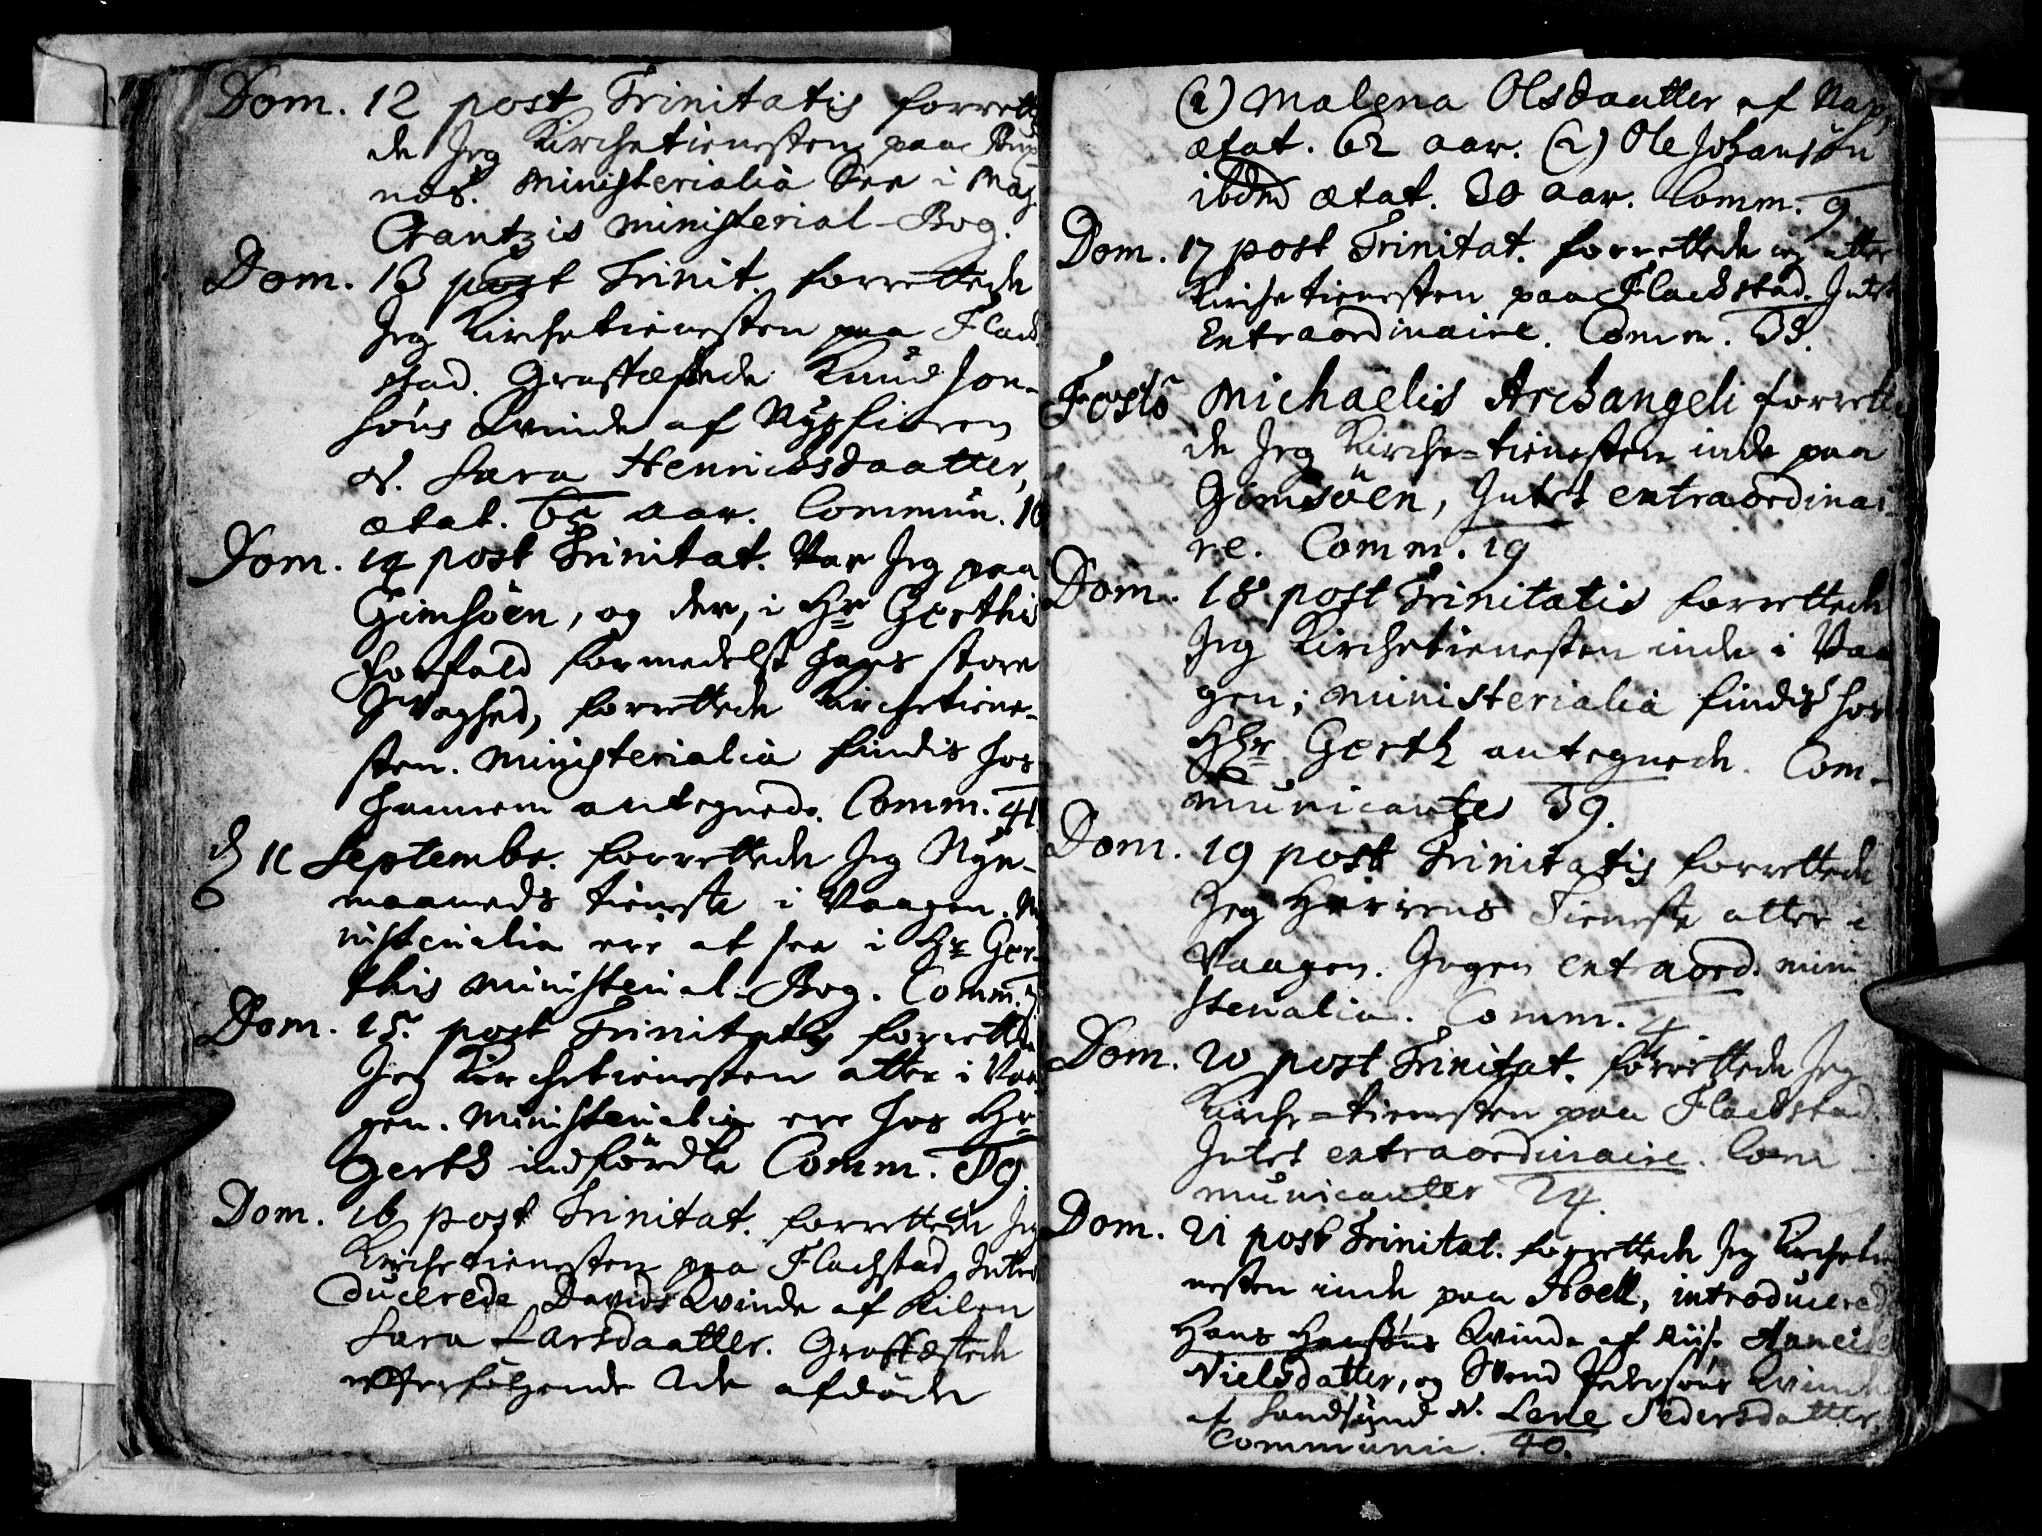 Dom. 12 post Trinitatis forrette
de Jeg Kirchetienesten paa Bux
nes. Ministerialia See i Mag.
Crantzis Ministerial-Bog.
Dom. 13 post Trinit. forrettede
Jeg Kirchetienesten paa Flack
stad. Grafæstede Knud Jon-
søns Qvinde af Nypfioren
N. Sara Henricsdaatter,
ætat. aar. Commun. 16
Dom. 14 post Trinitat. Var Jeg paa
Gimsöen, og der, i Hr Gerthis
forfald formedelst hans store
svaghed, forrettede Kirchetiene-
sten. Ministerialia findis hos
hannem antegnede. Comm. 41
11 Septembr. forrettede Jeg Nye-
maaneds tieneste i Vaagen. Mi
nisterialia ere at see i Hr Ger-
this Ministerial-Bog. Comm.
Dom. 15 post Trinitatis forrettede
Jeg Kirchetienesten atter i Vaa
gen. Ministerialia ere hos Hr
Gerth indførdte Comm. 39.
Dom. 16 post Trinitat. forrettede Jeg
Kirchetienesten paa Flachstad. Intro
ducerede Davids Qvinde af Kilen
Sara Larsdaatter. Graffæstede
effterfølgende Ade afdøde
(1) Malena Olsdaatter af Nap,
ætat. 62 aar. (2) Ole Johansøn
ibdm ætat. 30 aar. Comm. 9.
Dom. 17 post Trinitat. forrettede ieg atter
Kirchetienesten paa Flackstad. Intet
Extraordinaire. Comm. 33.
Festo Michaëlis Archangeli forrette
de Jeg Kirche-tienesten inde paa
Gimsöen, Intet extraordinai-
re. Comm. 19
Dom. 18 post Trinitatis forrettede
Jeg Kirchetienesten inde i Vaa
gen; Ministerialia findis hos
Hr Gerth antegnede. Com-
municantes 39.
Dom. 19 post Trinitatis forrettede
Jeg Herrens Tieneste atter i
Vaagen. Ingen extraord. mini
sterialia. Comm. 4
Dom. 20 post Trinitat. forrettede Jeg
Kirche-tienesten paa Flackstad.
Intet extraordinaire. Com
municanter 24.
Dom. 21 post Trinitat. forrettede Jeg Kirchetie
nesten inde paa Hoell, introducerede
Hans Hansøns Qvinde af Riise
Nielsdatter, og Svend Pedersøns Qvinde
af Sandsund N. Lene Pedersdatter,
Communic. 40.